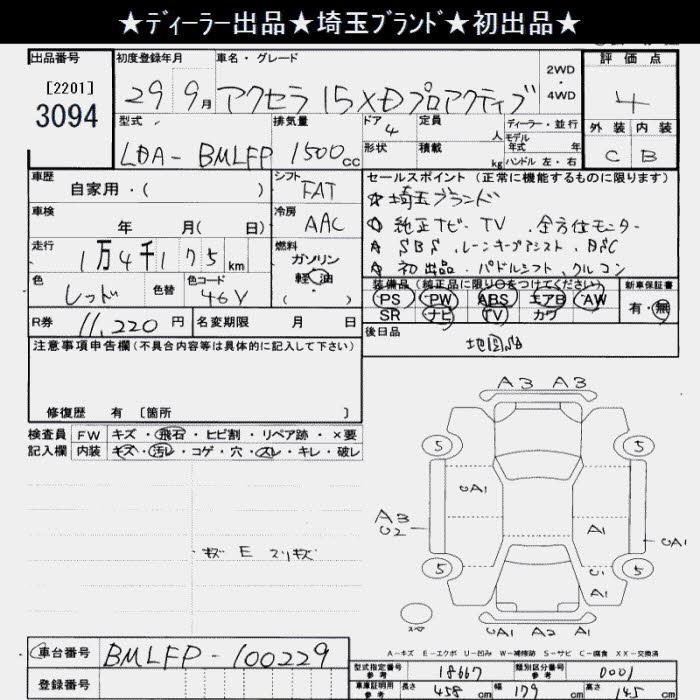 ★ディーラー出品★埼玉ブランド★初出品★
出品番号 初度登録年月 車名・グレード 評価点
[2201]
3094
29 9月 アクセラ 15XD プロアクティブ 2WD・4WD 4
型式 排気量 ドア 定員 ディーラー・並行 外装 内装
LDA-BMLFP 1500cc 4 人 モデル年式 年 C B
形状 積載 kg ハンドル 左・右
車歴 シフト セールスポイント(正常に機能するものに限ります)
自家用・( ) FAT ☆埼玉ブランド
車検 冷房 純正ナビ・TV 全方位モニター
年 月( 日) AAC SBS レーンキープアシスト BSC
走行 燃料
1万4千175km ガソリン 初出品・パドルシフト クルコン
軽油
( )
色 色替 色コード 装備品(純正品に限り○をつけてください) 新車保証書
レッド 46V PS PW ABS エアB AW 有・無
SR ナビ TV カワ
R券 11,220円 名変期限 月 日 後日品
地図SD
注意事項申告欄(不具合内容等は具体的に記入して下さい)
修復歴 有 [箇所 ]
検査員 FW キズ・飛石・ヒビ割・リペア跡・×要
記入欄 内装 キズ・汚レ・コゲ・穴・スレ・キレ・破レ
A3 A3
5 5
UA1
A3
U2
A1
UA1
5 U1 5
A1
UA1 A2 A1
A-キズ E-エクボ U-凹み W-補修跡 S-サビ C-腐食 XX-交換済
車台番号 BMLFP-100229
登録番号
型式指定番号 参考 18667 類別区分番号 参考 0001
車庫証明用 参考 長さ 458cm 幅 179cm 高さ 145cm